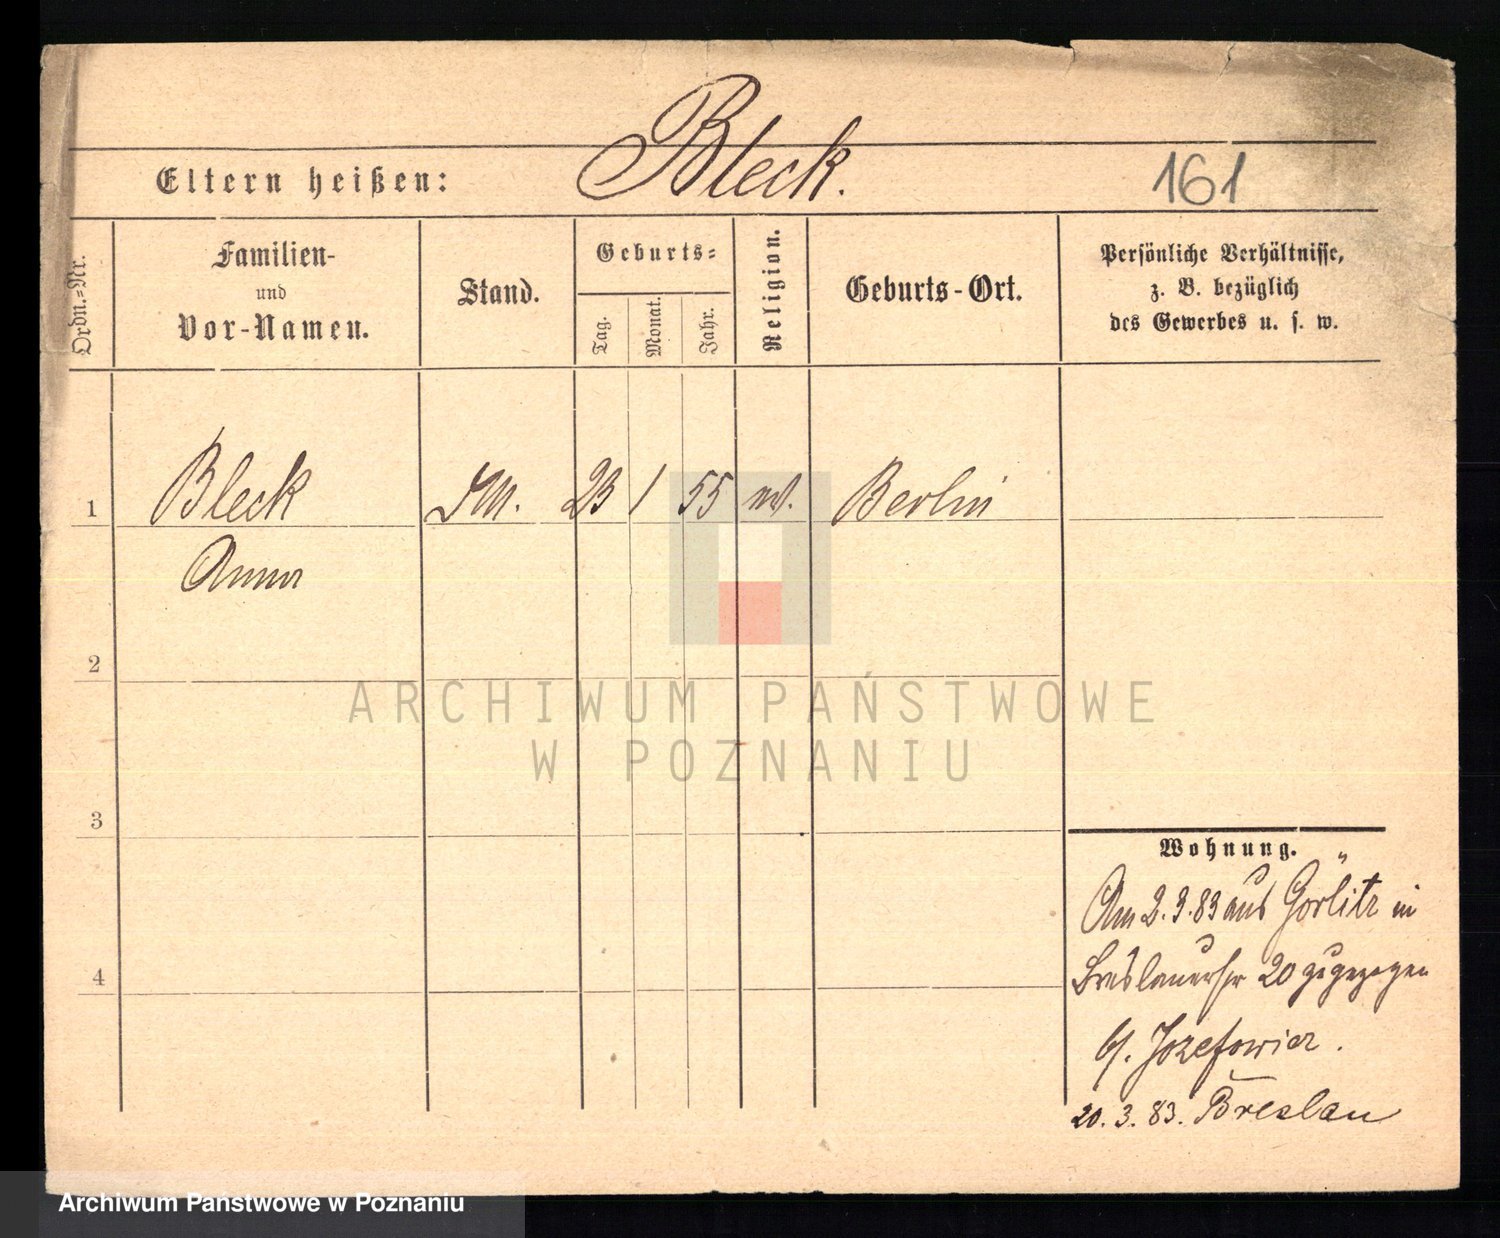 Bleck.
Eltern heißen:
161
Ordn.=Nr.
Familien-
und
Vor-Namen.
Stand.
Geburts=
Tag.
Monat.
Jahr.
Religion.
Geburts-Ort.
Persönliche Verhältnisse,
z. B. bezüglich
des Gewerbes u. s. w.
1
Bleck
23
1
55
Berlin
Anna
2
ARCHIWUM PAŃSTWOWE
W POZNANIU
3
Wohnung.
Am 2.3.83 aus Görlitz in
Breslauerstr 20 zugezogen
b/. Jozefowicz.
4
20. 3. 83. Breslau
Archiwum Państwowe w Poznaniu